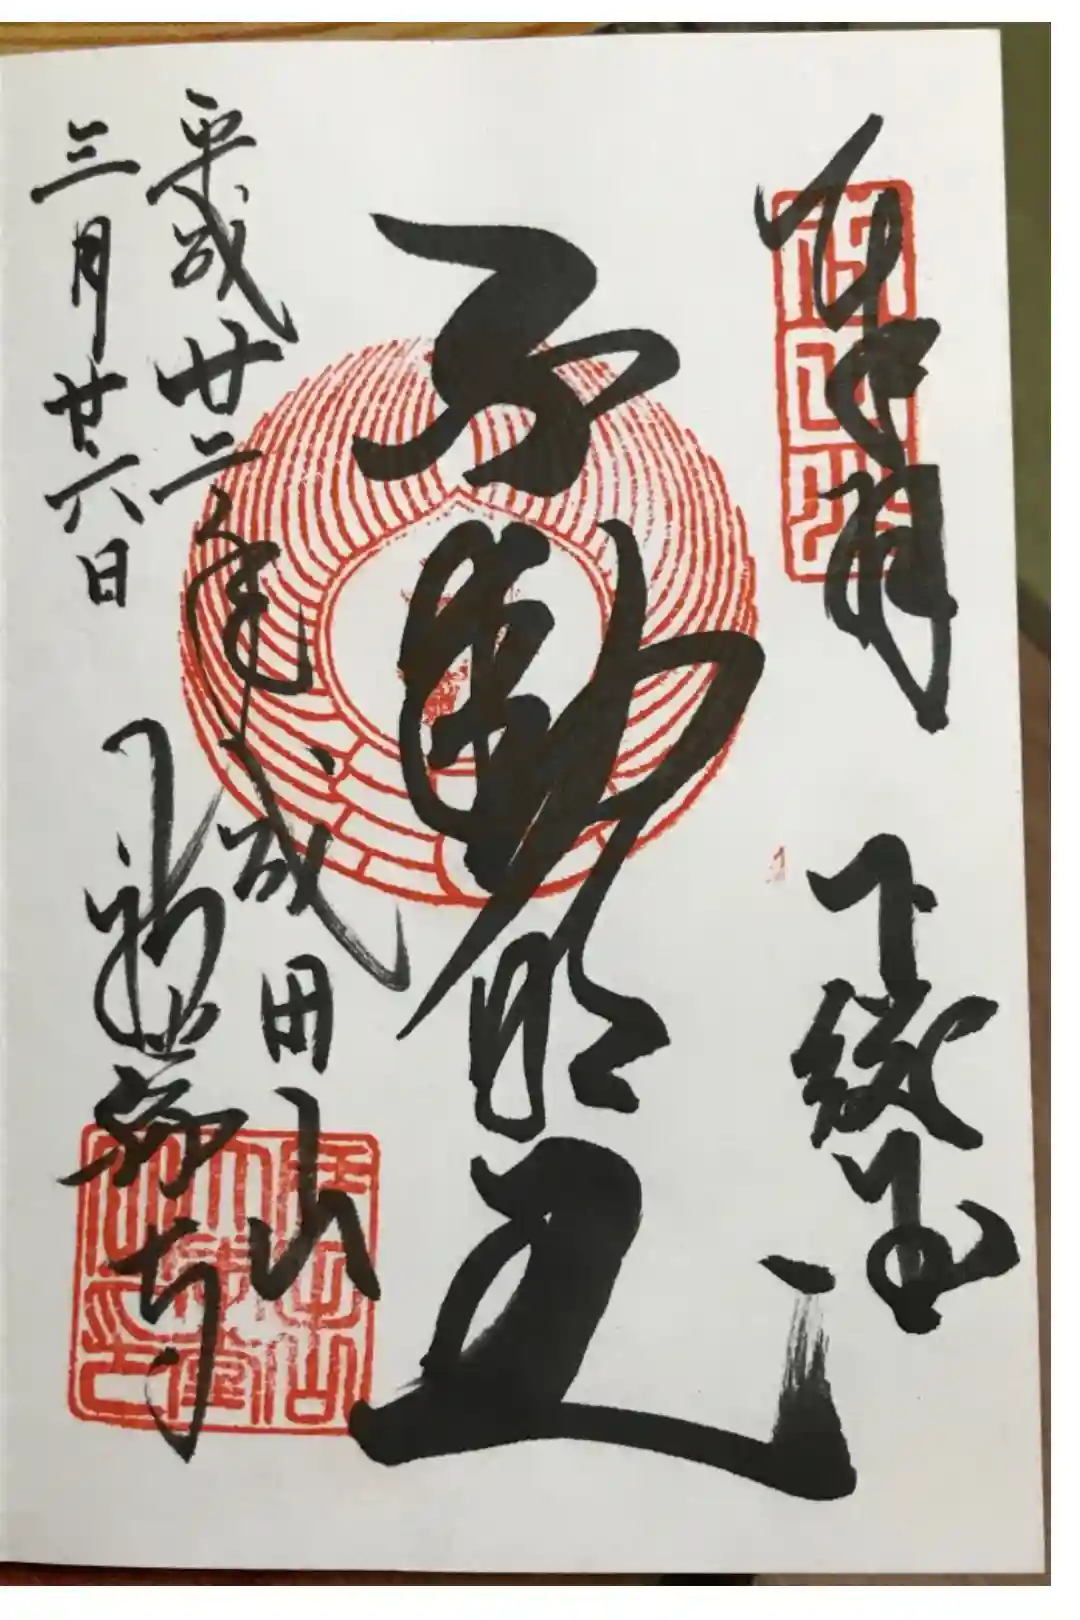 奉拝 下総国
不動明王
平成廿二年 成田山
三月廿六日 新勝寺